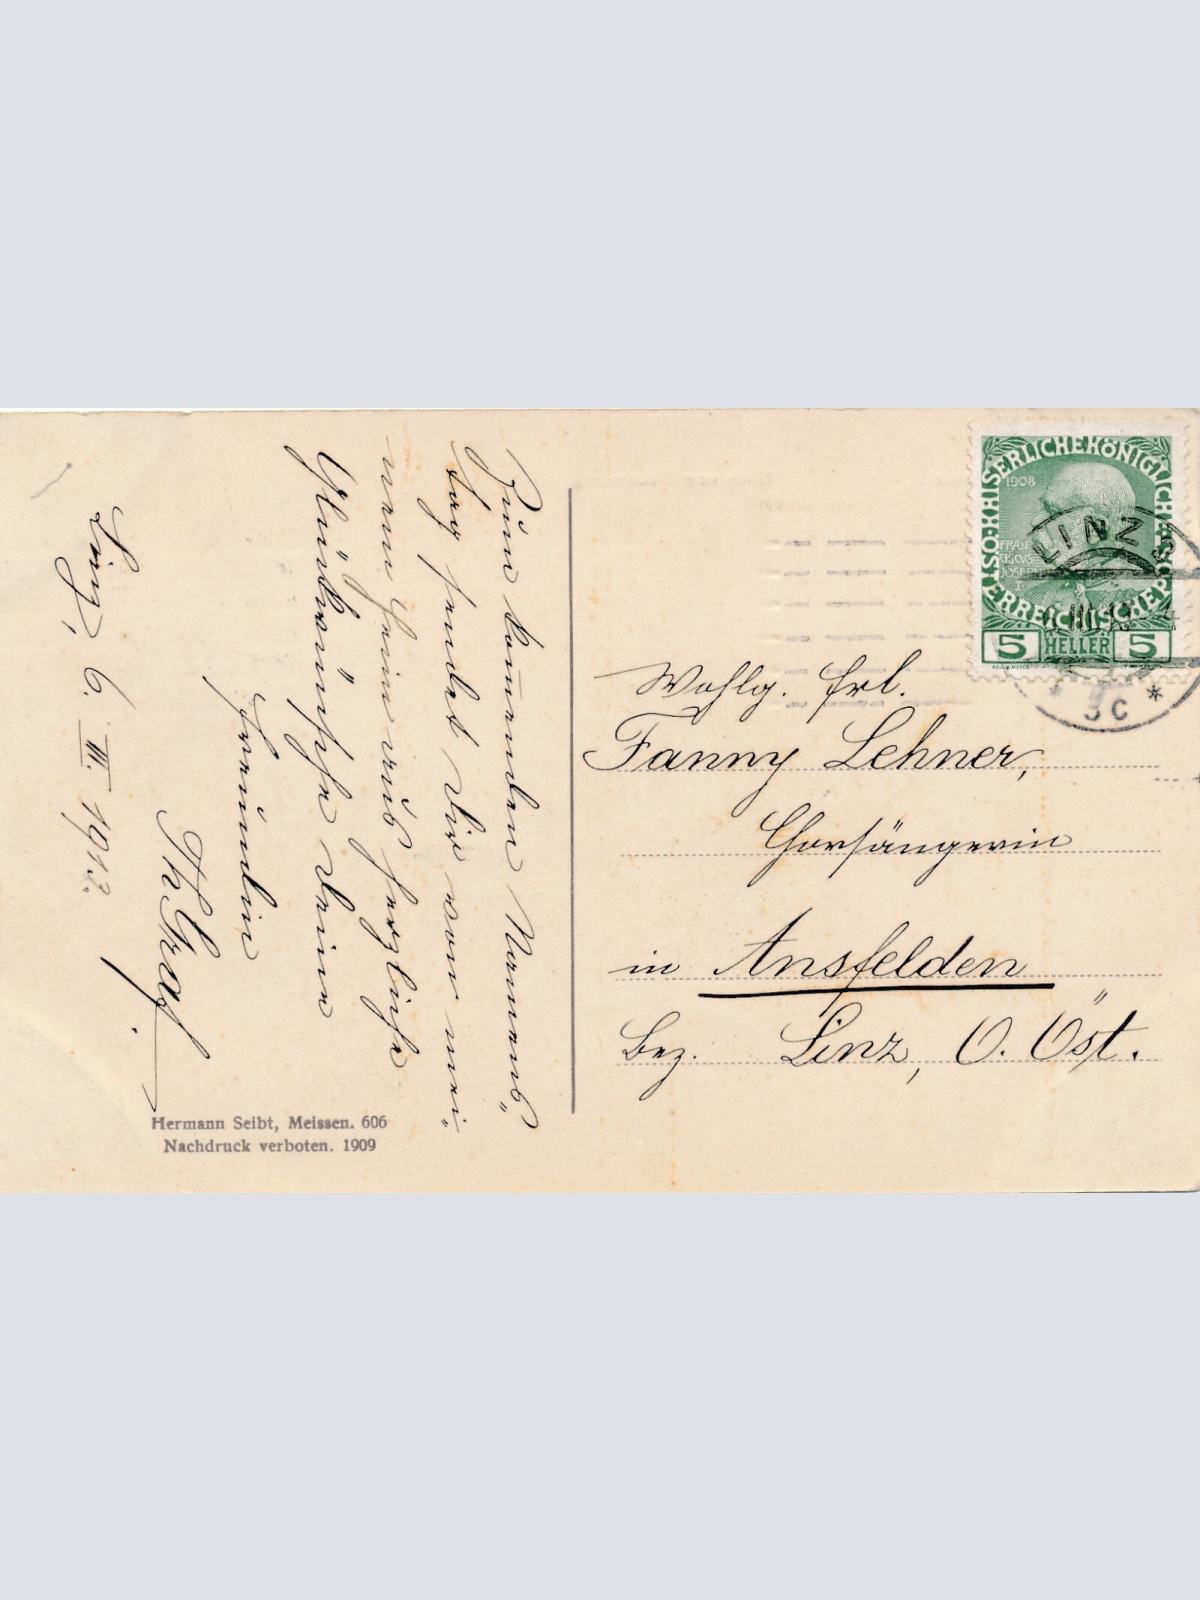 Zum kom̅enden Namens„
tag sendet Dir von mei„
nem Heim aus herzliche
Glückwünsche Deine
Freundin
Th Graf.
Linz, 6. III. 1913.
Hermann Seibt, Meissen. 606
Nachdruck verboten. 1909
KAISERLICHE KÖNIGLICHE ÖSTERREICHISCHE POST
1908
FRAN
CISCVS
JOSEPH
I
5 HELLER 5
LINZ
III 13
5c *
Wohlg. Frl.
Fanny Lehner,
Chorsängerin
in Ansfelden
Bez. Linz, O. Öst.